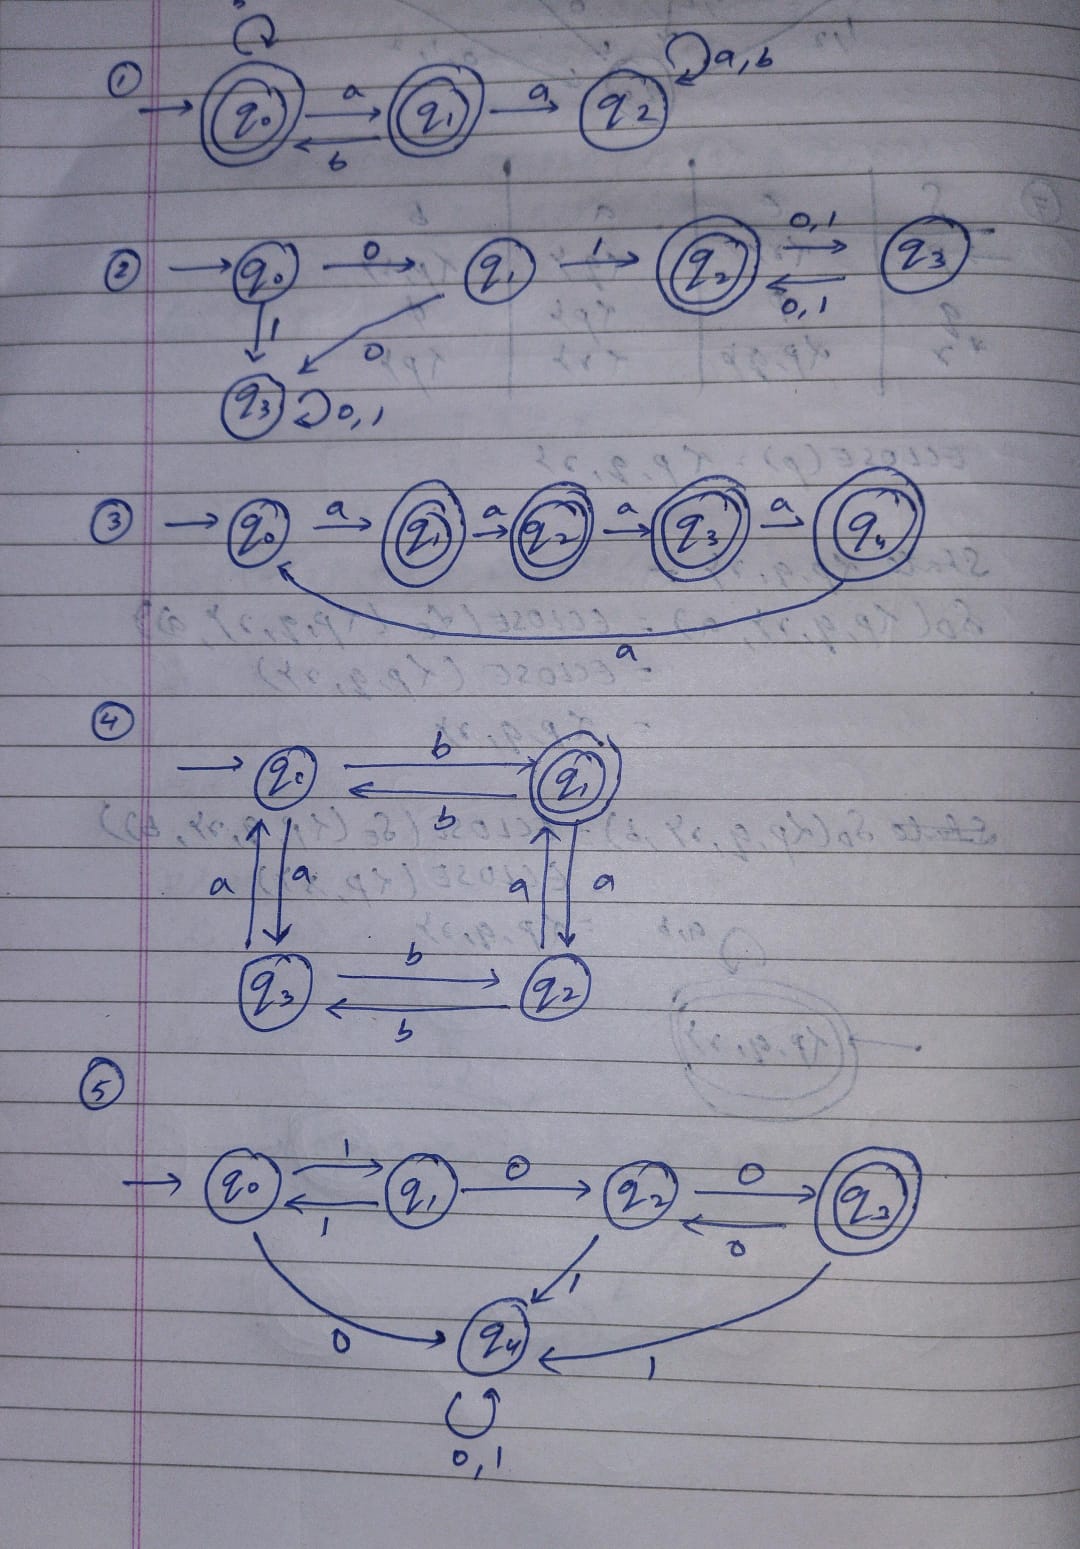 ①
q0 a q1 a q2 a, b
b
② q0 0 q1 1 q2 0,1 q3
1 0 0,1
q3 0,1
③ q0 a q1 a q2 a q3 a q4
a
④
q0 b q1
b
a a a a
q3 b q2
b
⑤
q0 1 q1 0 q2 0 q3
1 0
0 1 1
q4
0,1